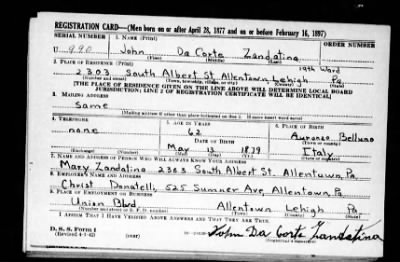 REGISTRATION CARD—(Men born on or after April 28, 1877 and on or before February 16, 1897)
SERIAL NUMBER 1. NAME (Print) ORDER NUMBER
U 990 John Da Corte Zandatina
(First) (Middle) (Last)
19th Ward
2. PLACE OF RESIDENCE (Print)
2303 South Albert St Allentown, Lehigh Pa.
(Number and street) (Town, township, village, or city) (County) (State)
[THE PLACE OF RESIDENCE GIVEN ON THE LINE ABOVE WILL DETERMINE LOCAL BOARD
JURISDICTION; LINE 2 OF REGISTRATION CERTIFICATE WILL BE IDENTICAL]
3. MAILING ADDRESS
Same
[Mailing address if other than place indicated on line 2. If same insert word same]
4. TELEPHONE 5. AGE IN YEARS 6. PLACE OF BIRTH
none 62 Auronzo Belluno
DATE OF BIRTH (Town or county)
May 13 1879 Italy
(Exchange) (Number) (Mo.) (Day) (Yr.) (State or country)
7. NAME AND ADDRESS OF PERSON WHO WILL ALWAYS KNOW YOUR ADDRESS
Mary Zandatina 2303 South Albert St. Allentown, Pa.
8. EMPLOYER'S NAME AND ADDRESS
Christ Donatelli, 525 Sumner Ave, Allentown, Pa.
9. PLACE OF EMPLOYMENT OR BUSINESS
Union Blvd. Allentown Lehigh Pa
(Number and street or R. F. D. number) (Town) (County) (State)
I AFFIRM THAT I HAVE VERIFIED ABOVE ANSWERS AND THAT THEY ARE TRUE.
D. S. S. Form 1
(Revised 4-1-42) (over) John Da Corte Zandatina
(Registrant's signature)